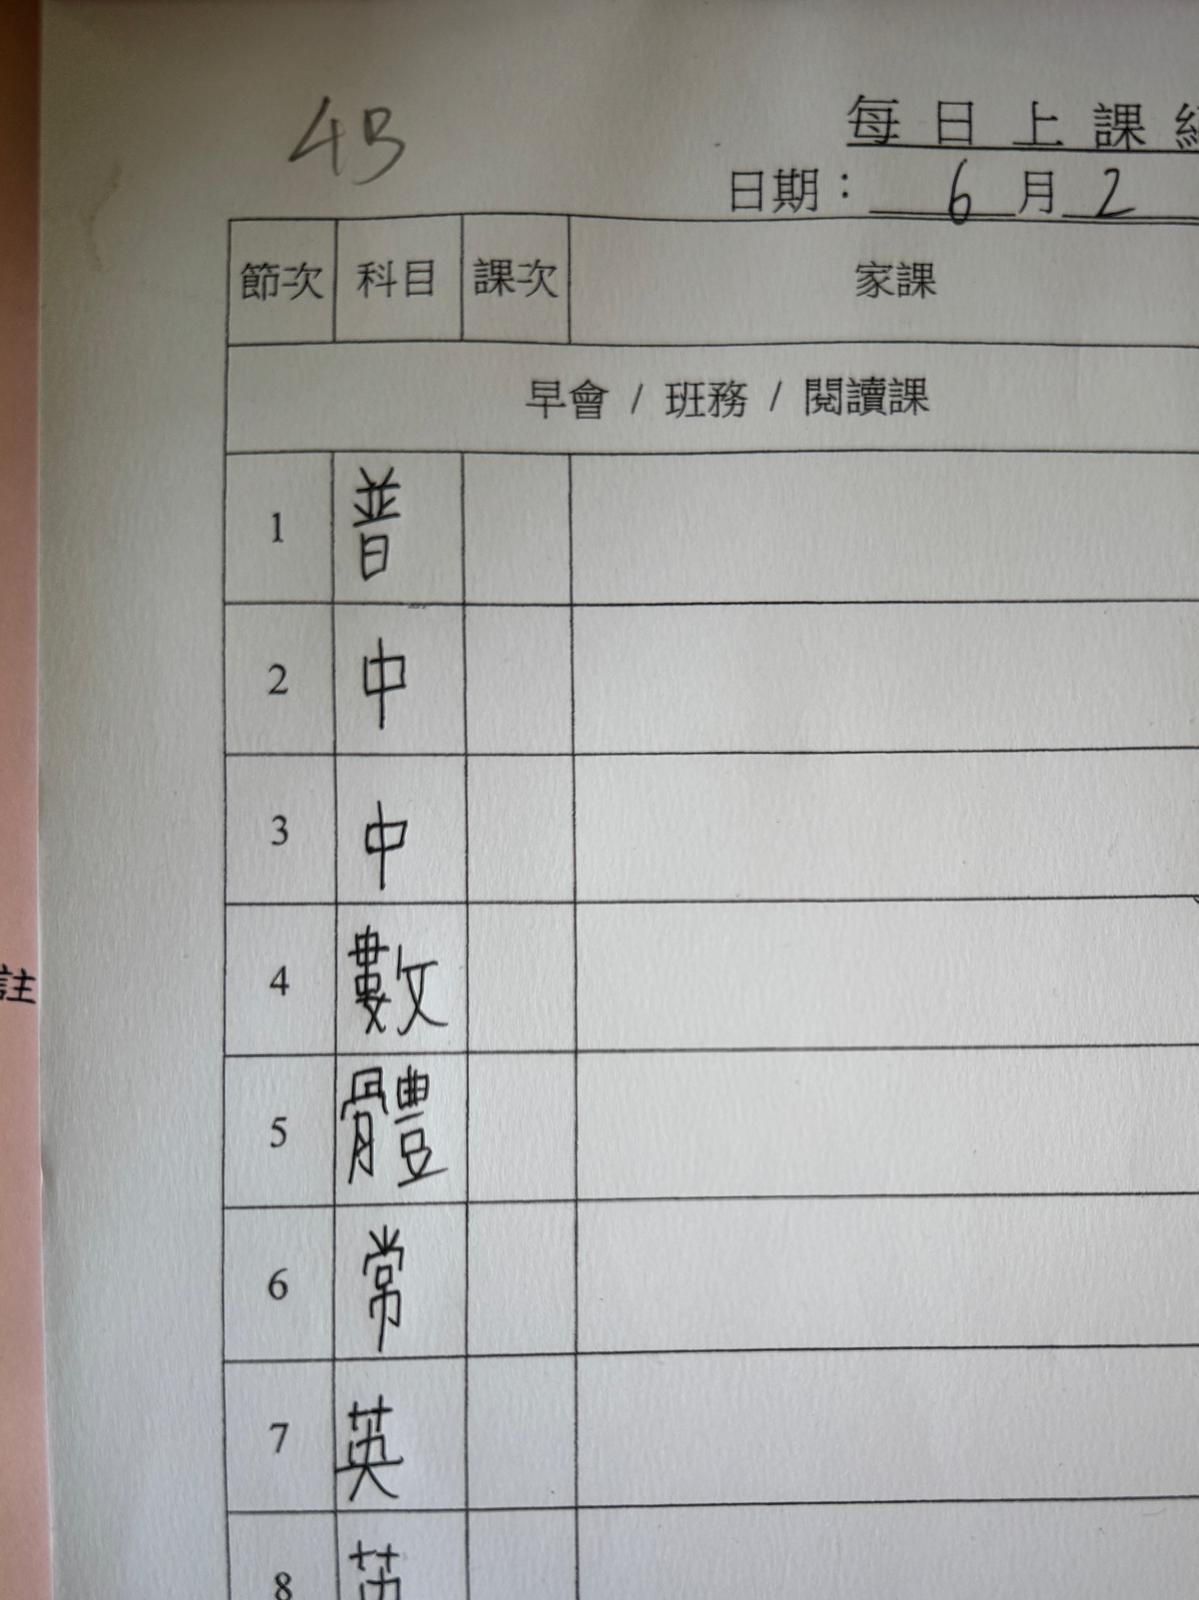 4B
每日上課
日期： 6 月 2
節次 科目 課次 家課
早會 / 班務 / 閱讀課
1 普
2 中
3 中
4 數
註
5 體
6 常
7 英
8 英